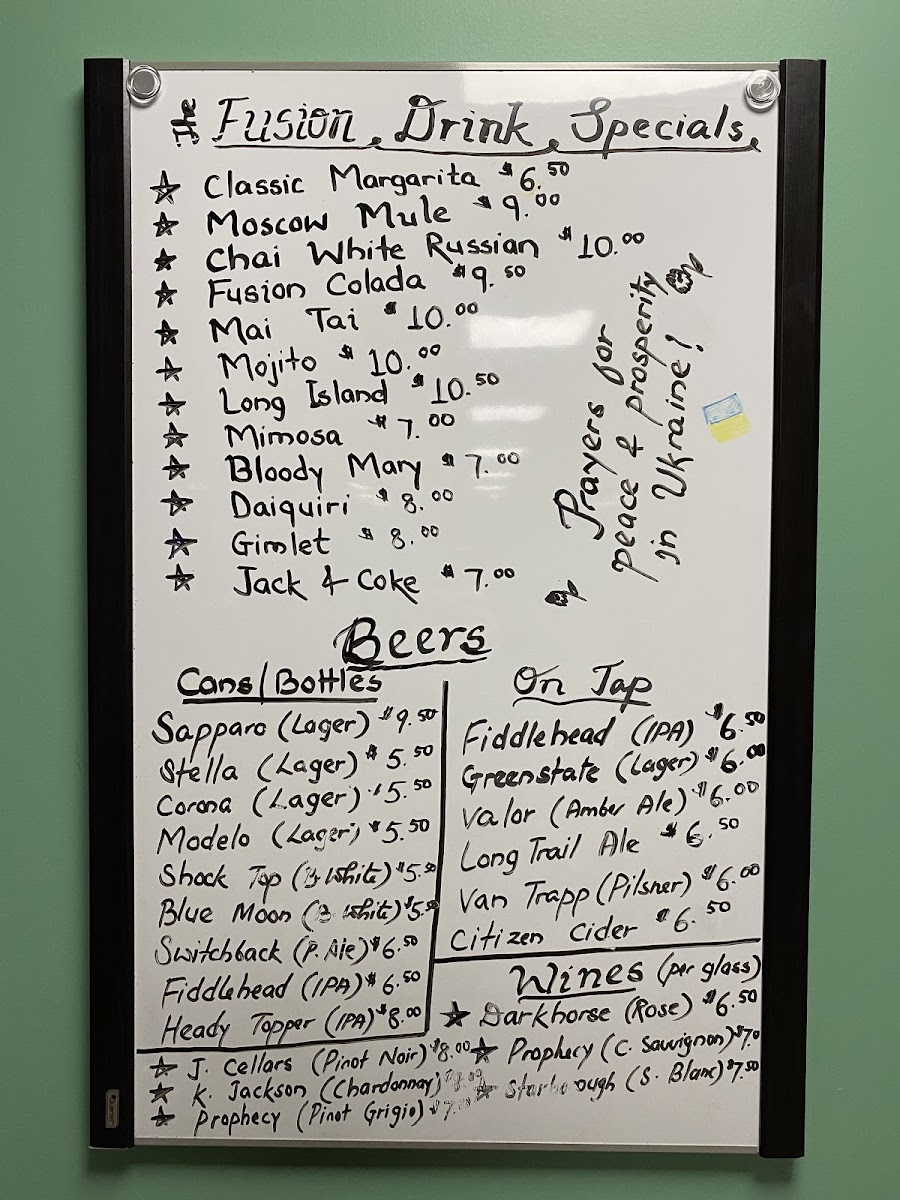 The Fusion Drink Specials
Classic Margarita $6.50
Moscow Mule $9.00
Chai White Russian $10.00
Fusion Colada $9.50
Mai Tai $10.00
Mojito $10.00
Long Island $10.50
Mimosa $7.00
Bloody Mary $7.00
Daiquiri $8.00
Gimlet $8.00
Jack & Coke $7.00
Prayers for
peace & prosperity
in Ukraine!
Beers
Cans/Bottles
Sapparo (Lager) $9.50
Stella (Lager) $5.50
Corona (Lager) $5.50
Modelo (Lager) $5.50
Shock Top (B. White) $5.50
Blue Moon (B. White) $5.50
Switchback (P. Ale) $6.50
Fiddlehead (IPA) $6.50
Heady Topper (IPA) $8.00
On Tap
Fiddlehead (IPA) $6.50
Greenstate (Lager) $6.00
Valor (Amber Ale) $6.00
Long Trail Ale $6.50
Van Trapp (Pilsner) $6.00
Citizen Cider $6.50
Wines (per glass)
Darkhorse (Rose) $6.50
Prophecy (C. Sauvignon) $7.0
Starborough (S. Blanc) $7.50
J. Cellars (Pinot Noir) $8.00
K. Jackson (Chardonnay)
Prophecy (Pinot Grigio)